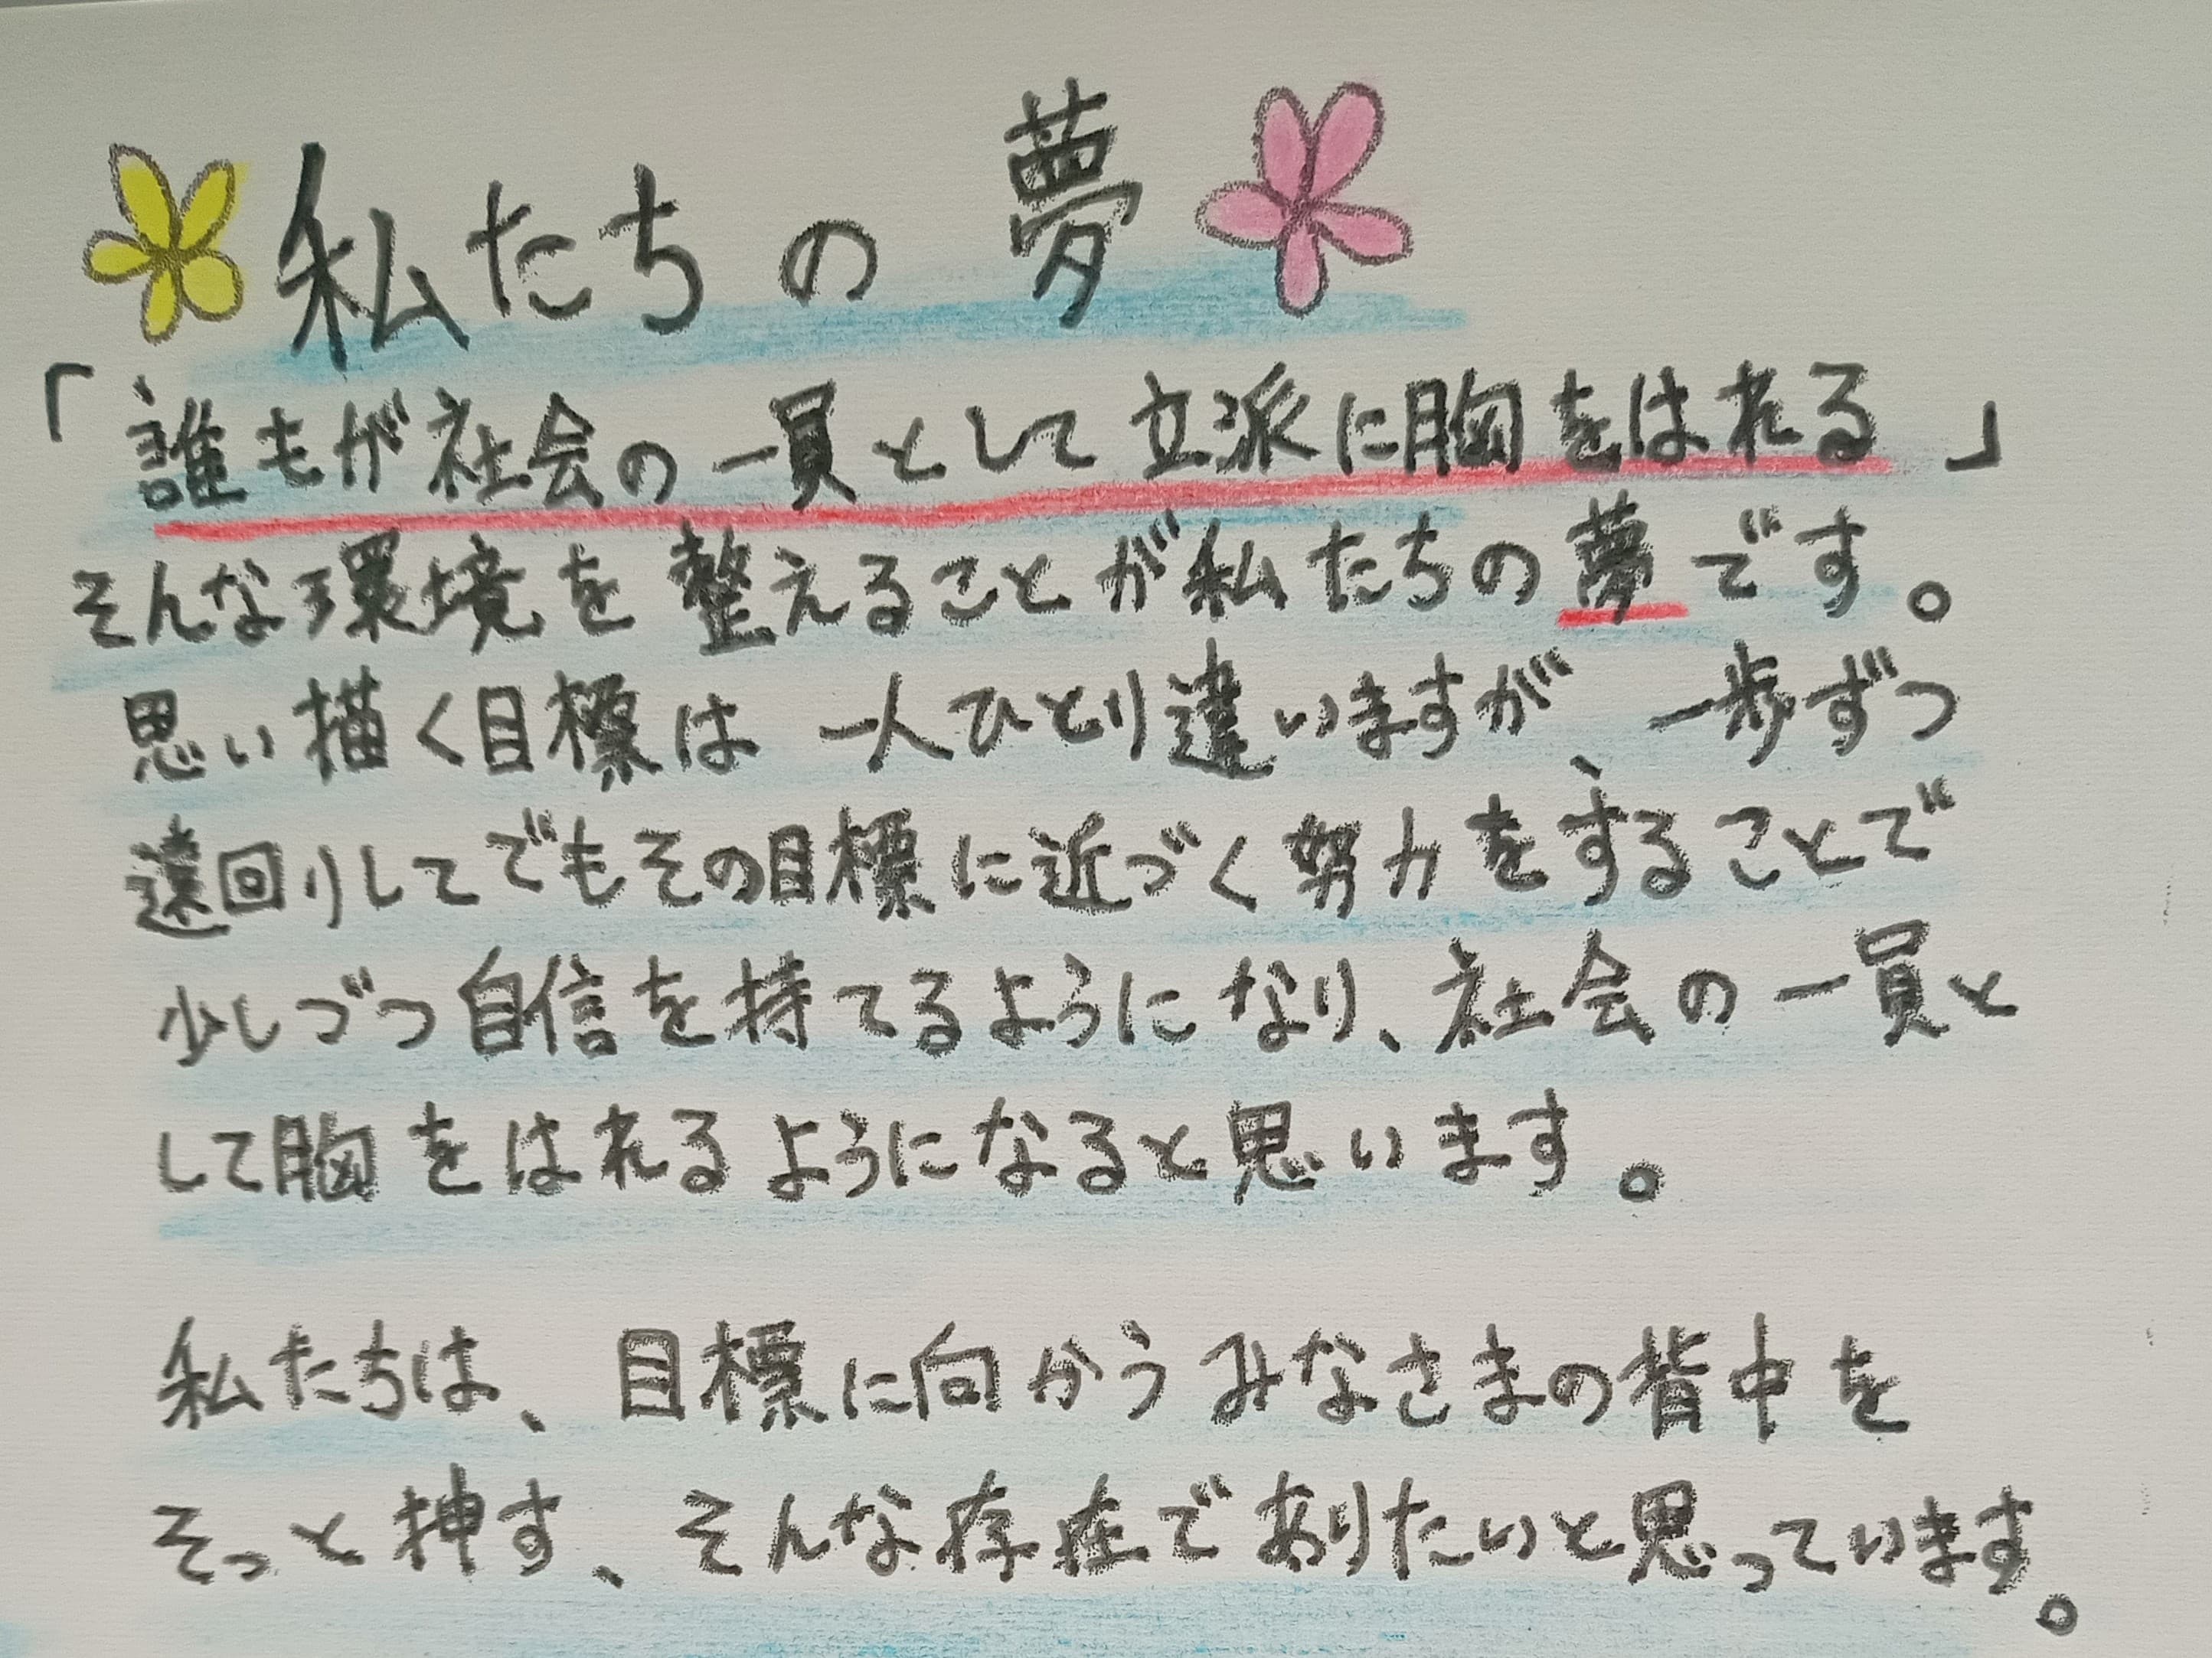 私たちの夢
「誰もが社会の一員として立派に胸をはれる」
そんな環境を整えることが私たちの夢です。
思い描く目標は一人ひとり違いますが、一歩ずつ
遠回りしてでもその目標に近づく努力をすることで
少しづつ自信を持てるようになり、社会の一員と
して胸をはれるようになると思います。
私たちは、目標に向かうみなさまの背中を
そっと押す、そんな存在でありたいと思っています。